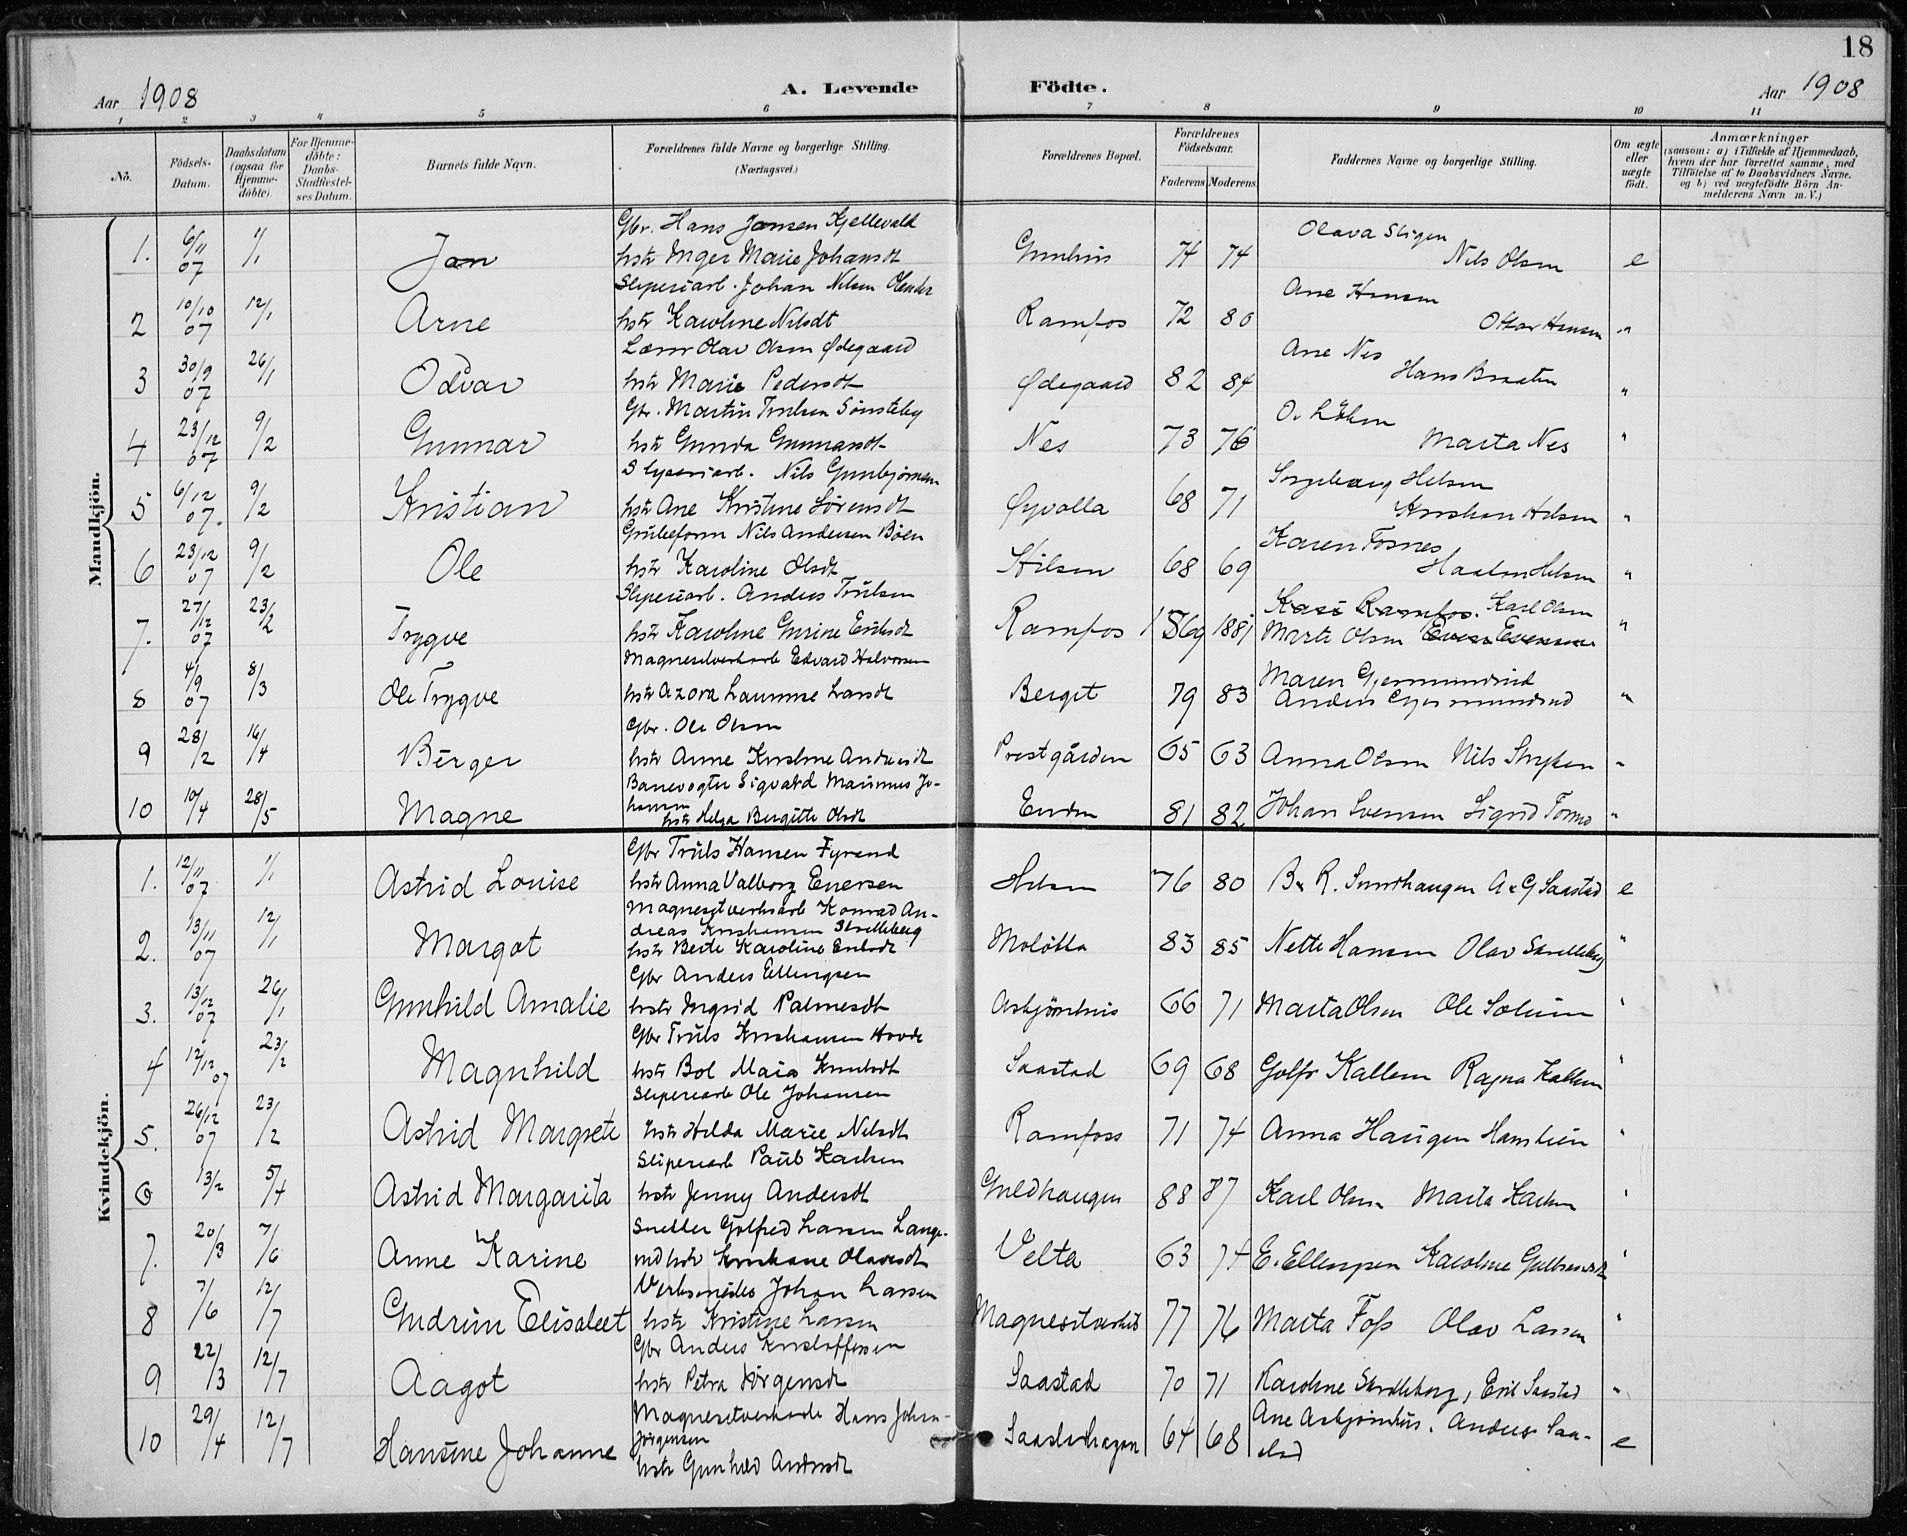 18
Aar 1908
A. Levende Födte.
Aar 1908
1 2 3 4 5 6 7 8 9 10 11
No.
Födsels-Datum.
Daabsdatum (ogsaa for Hjemmedöbte).
For Hjemmedöbte: Daabs-Stadfæstelses Datum.
Barnets fulde Navn.
Forældrenes fulde Navne og borgerlige Stilling. (Næringsvei.)
Forældrenes Bopæl.
Forældrenes Födselsaar.
Faderens Moderens
Faddernes Navne og borgerlige Stilling.
Om ægte eller uægte födt.
Anmærkninger
(saasom: a) i Tilfælde af Hjemmedaab, hvem der har forrettet samme, med Tilföielse af to Daabsvidners Navne, og b) ved uægtefödte Börn Anmelderens Navn m.V.)
Mandkjön.
Gbr. Hans Jansen Kjellevald
1. 6/11 07 1/1 Jan hstr Inger Marie Johansdt 74 74 Olava Nils Olsen e
Sliperiarb. Johan Nilsen
2 10/10 07 12/1 Arne hstr Karoline Nilsdt Ramfos 72 80 Ane Hansen Hansen "
Olav Olsen Ødegaard
3 30/9 07 26/1 Odvar hstr Marie Pedersdt Ødegaard 82 84 Ane Nes Hans Braaten "
Gbr. Martin Trulsen Sønsteby
4 23/12 07 9/2 Gunnar hstr Gunda Gunnarsdt Nes 73 76 O. Marta Nes "
Nils Gunbjørnsen
5 6/12 07. 9/2 Kristian hstr Ane Kristine Sørensdt Øyvolla 68 71 "
Nils Andersen Bøen
6 23/12 07 9/2 Ole hstr Karoline Olsdt 68 69 Karen Fosnes "
Sliperiarb. Anders Trulsen
7. 27/12 07 23/2 Trygve hstr Karoline Gurine Eriksdt Ramfos 1869 1881 Kari Ramfos. Karl Olsen Marte Olsen Even Evensen "
Magnesitverkarb Edvard Halvorsen
8 4/9 07 8/3 Ole Trygve hstr Azora Laumine Larsdt Berget 79 83 Maren Gjermundrud Anders Gjermundrud "
Gbr. Ole Olsen
9 28/2 16/4 Birger hstr Anne Kristine Andersdt Prestgården 65 63 Anna Olsen Nils Stryken "
Banevogter Sigvald Marinius Jo-
hansen
10 10/4 28/5 Magne hstr Helga Bergitte Olsdt Enden 81 82 Johan Svensen Sigrid "
Kvindekjön.
Gbr Truls Hansen Fyrand
1. 12/11 07 1/1 Astrid Louise hstr Anna Valborg Enersen 76 80 B. R. Sundhaugen A. G Saastad e
Magnesitverksarb Konrad An-
dreas Kristiansen Skrelleberg
2. 13/11 07 12/1 Margot hstr Berte Karoline 83 85 Nette Hansen Olav "
Gbr Anders Ellingsen
3. 13/12 07 26/1 Gunhild Amalie hstr Ingrid Palmesdt Asbjørnhus 66 71 Marta Olsen Ole Solum "
Gbr Truls Kristiansen Hovde
4 12/12 07 23/2 Magnhild hstr Bol Maria Knutsdt Saastad 69 68 Golfr Kallem Ragna Kallem "
Sliperiarb Ole Johansen
5. 26/12 07 23/2 Astrid Margrete hstr Hilda Marie Nilsdt Ramfoss 71 74 Anna Haugen Hans Lien "
Sliperiarb Paul Karlsen
6 13/2 5/4 Astrid Margarita hstr Jenny Andersdt Guldhaugen 88 87 Karl Olsen Marta Karlsen "
Sneller Golfred Larsen Lange-
7. 20/3 7/6 Anne Karine rud hstr Kristiane Olavesdt Velta 63 74 E. Ellingsen Karoline "
Verksmester Johan Larsen
8 7/6 12/7 Gudrun Elisabet hstr Kristine Larsen Magnesitverket 77 76 Marta Foss Olav Larsen "
Gbr Anders Kristoffersen
9 22/3 12/7 Aagot hstr Petra Jørgensdt Saastad 70 71 Karoline Skrelleberg, Erik Saastad "
Magnesitverkarb Hans Johan
Jørgensen
10 29/4 12/7 Hansine Johanne hstr Gunhild Andersdt Saastadhagen 64 68 Ane Asbjørnhus. Anders Saa-
stad e